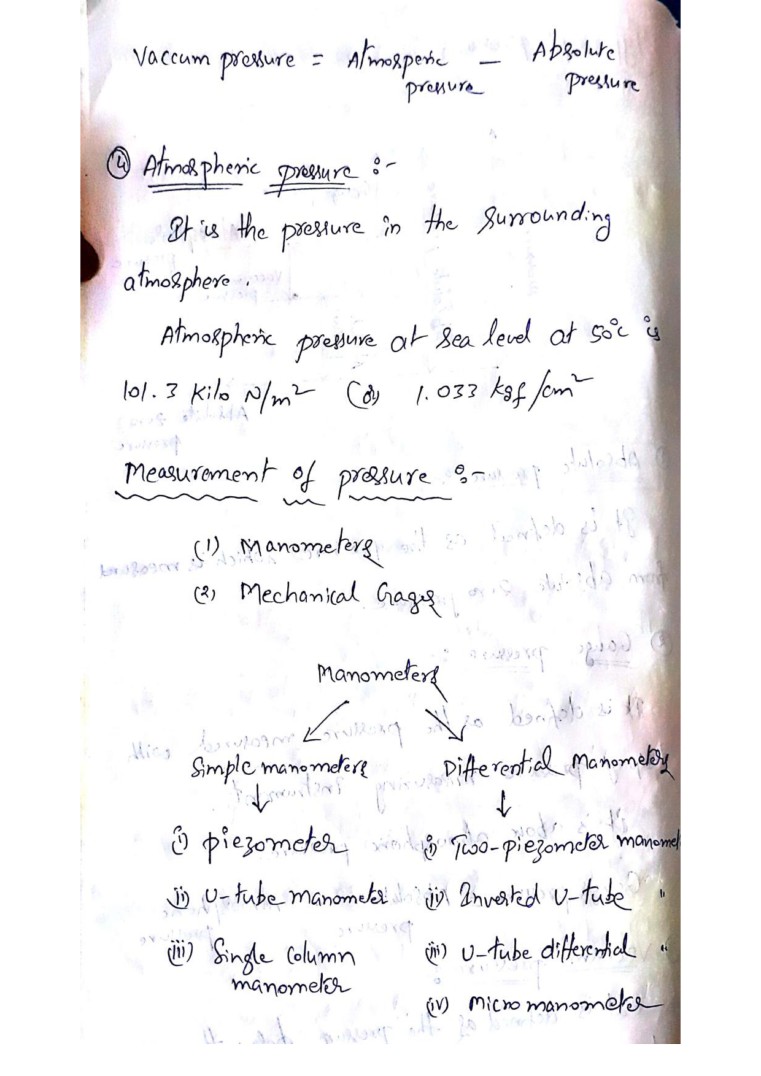 Vaccum pressure = Atmosperic pressure — Absolute pressure
④ Atmospheric pressure :-
It is the pressure in the surrounding
atmosphere.
Atmospheric pressure at sea level at 50°c is
101.3 Kilo N/m² (or) 1.033 kgf/cm²
Measurement of pressure :-
(1) Manometers
(2) Mechanical Gages
Manometers
Simple manometers
Differential Manometers
(i) piezometer
ii) U-tube manometer
(iii) Single Column
manometer
(i) Two-piezometer manomet
(ii) Inverted U-tube "
(iii) U-tube differential "
(iv) Micro manometer